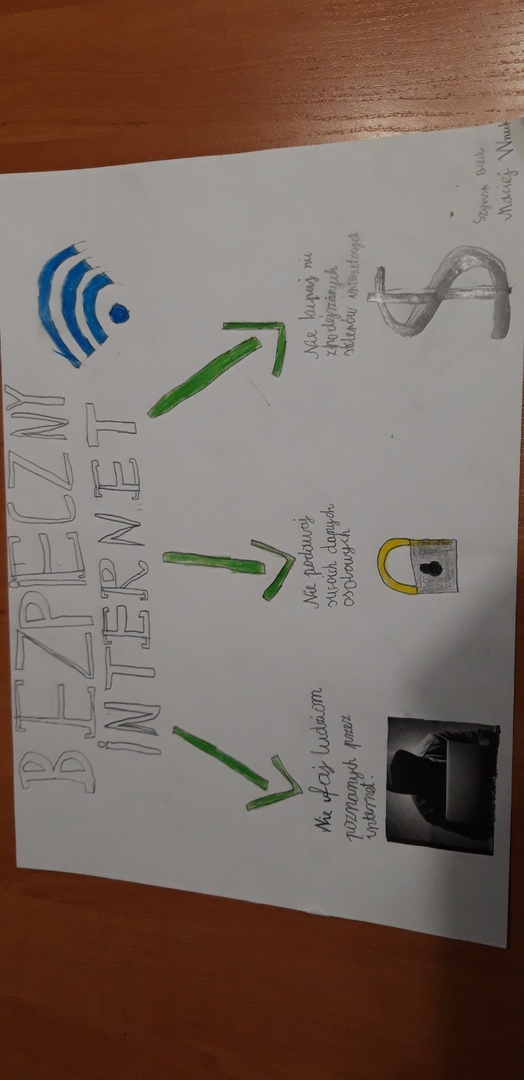 BEZPIECZNY
INTERNET
Nie ufaj ludziom
poznanych przez
internet.
Nie podawaj
swoich danych
osobowych
Nie kupuj nic
zpodejżanych
sklepów internetowych
Szymon
Maciej Wnuk